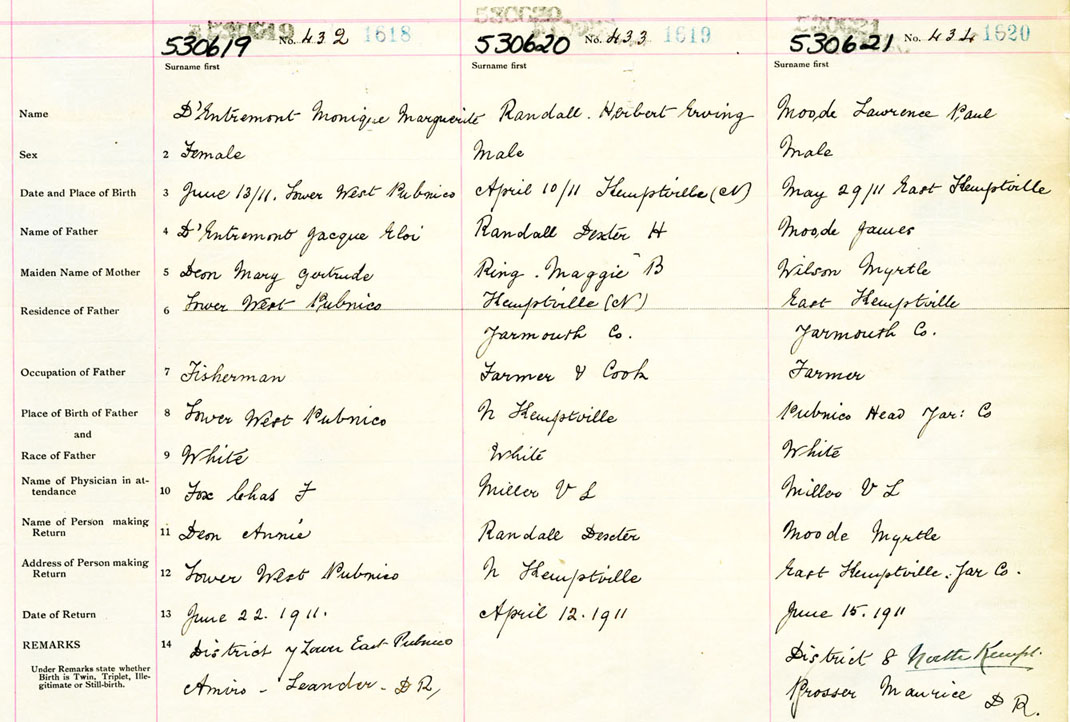 530619 No. 432 1618
530620 No. 433 1619
530621 No. 434 1620
Surname first Surname first Surname first
Name D'Entremont Monique Marguerite Randall. Herbert Erving Moode Lawrence Paul
Sex 2 Female Male Male
Date and Place of Birth 3 June 13/11. Lower West Pubnico April 10/11 Kemptville (N) May 29/11 East Kemptville
Name of Father 4 D'Entremont Jacque Eloi Randall Dexter H Moode James
Maiden Name of Mother 5 Deon Mary Gertrude Ring. Maggie B Wilson Myrtle
Residence of Father 6 Lower West Pubnico Kemptville (N) East Kemptville
Yarmouth Co. Yarmouth Co.
Occupation of Father 7 Fisherman Farmer & Cook Farmer
Place of Birth of Father 8 Lower West Pubnico N Kemptville Pubnico Head Yar: Co
and
Race of Father 9 White White White
Name of Physician in at-
tendance 10 Fox Chas F Miller V L Miller V L
Name of Person making
Return 11 Deon Annie Randall Dexter Moode Myrtle
Address of Person making
Return 12 Lower West Pubnico N Kemptville East Kemptville. Yar Co.
Date of Return 13 June 22. 1911. April 12. 1911 June 15. 1911
REMARKS 14 District 7 Lower East Pubnico District 8 North Kempt.
Under Remarks state whether
Birth is Twin, Triplet, Ille-
gitimate or Still-birth.
Amiro - Leander - D R, Prosser Maurice D R.